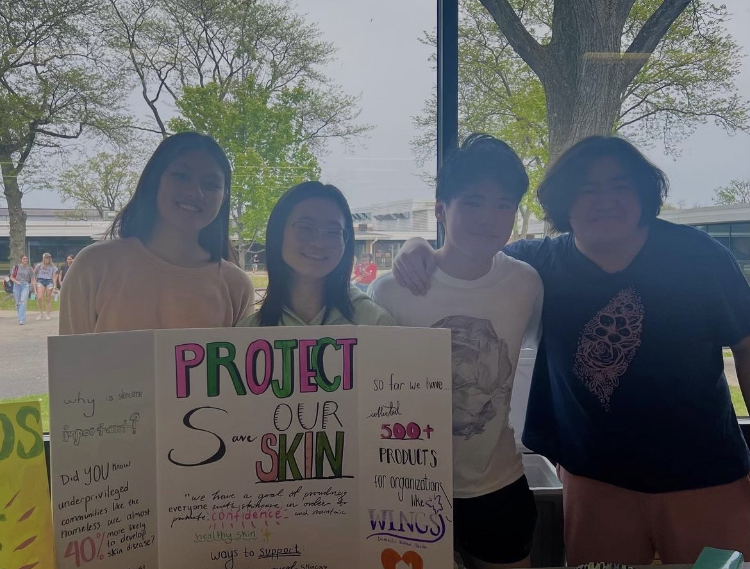 OS
why is skincare
important?
Did YOU know
underprivileged
communities like the
homeless are almost
40% more likely
to develop
skin disease?
PROJECT
Save OUR
SKIN
"we have a goal of providing
everyone with skincare in order to
promote confidence and maintain
healthy skin
ways to support
so far we have...
collected
500+
PRODUCTS
for organizations
like
WINGS